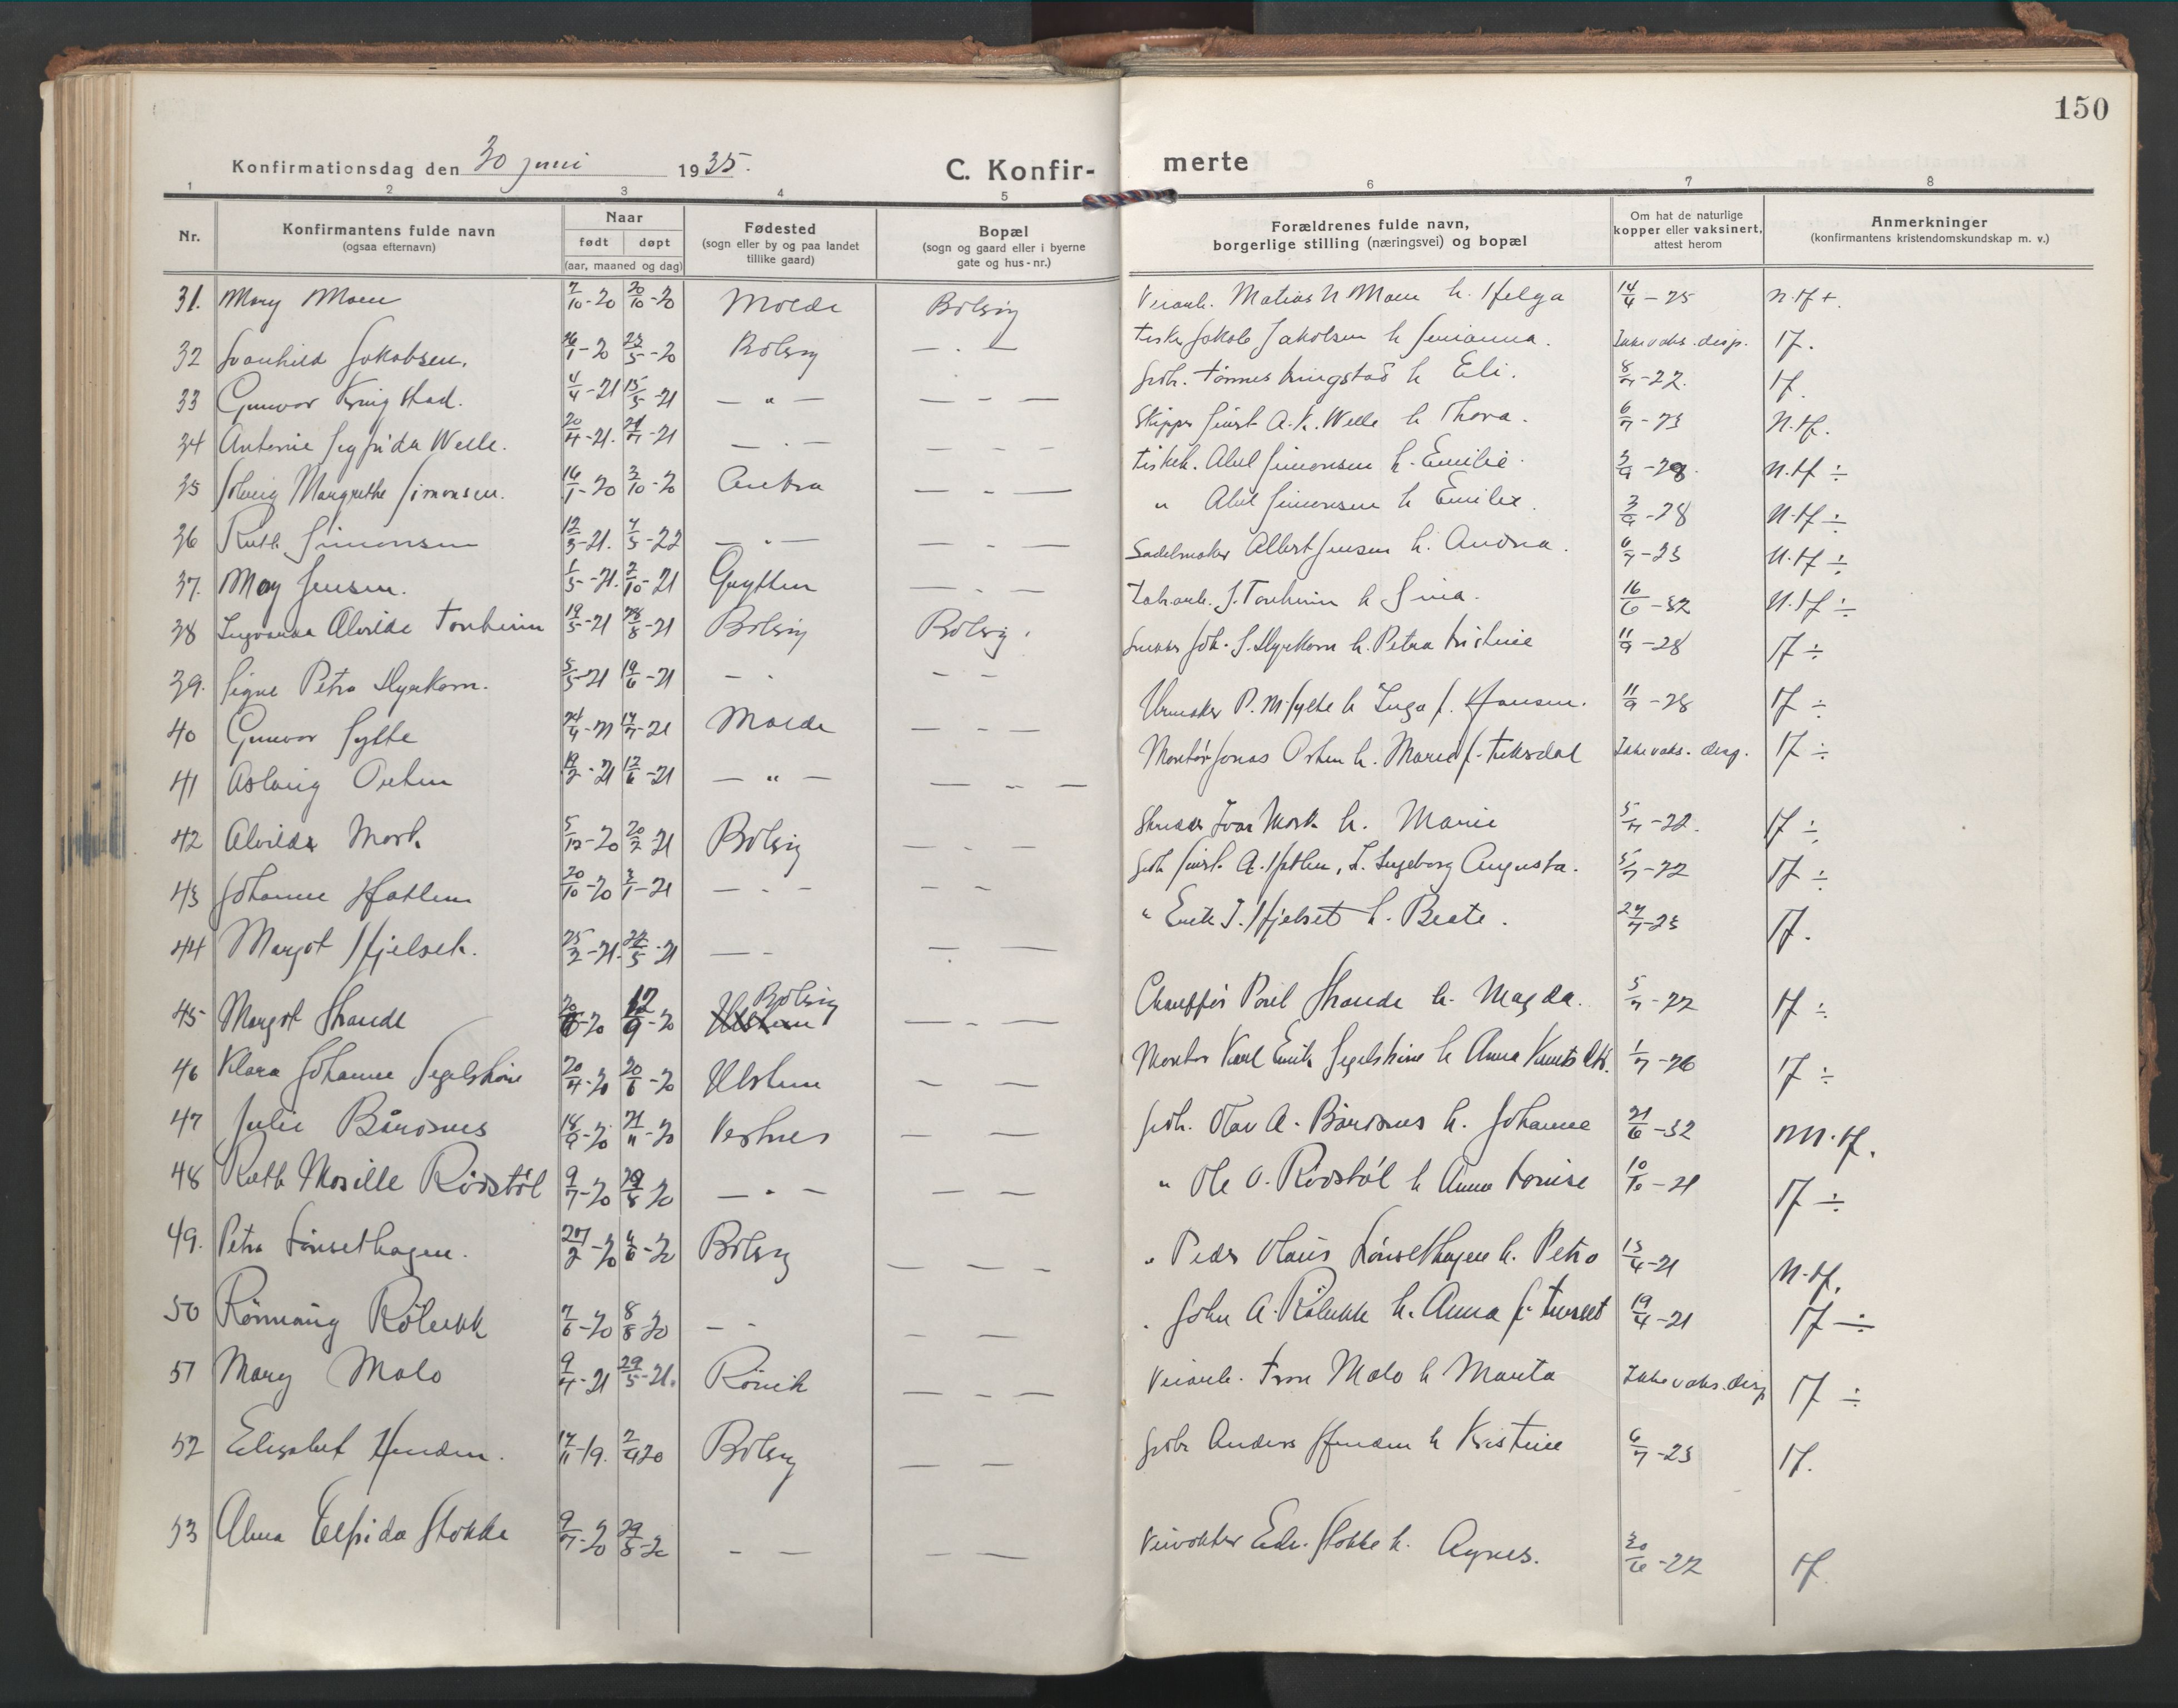 150
Konfirmationsdag den 30 juni 1935.
C. Konfir-
merte
1 2 3 4 5 6 7 8
Nr.
Konfirmantens fulde navn
(ogsaa efternavn)
Naar
født døpt
(aar, maaned og dag)
Fødested
(sogn eller by og paa landet
tillike gaard)
Bopæl
(sogn og gaard eller i byerne
gate og hus-nr.)
Forældrenes fulde navn,
borgerlige stilling (næringsvei) og bopæl
Om hat de naturlige
kopper eller vaksinert,
attest herom
Anmerkninger
(konfirmantens kristendomskundskap m. v.)
31. Mary Moen 7/10-20 20/10-20 Molde Bolsøy Veiarb. Matias N Moen h. Helga 14/4-25 n.tf +.
32 Svanhild Jakobsen. 26/1-20 23/5-20 Bolsøy — . — Fisker Jakob Jakobsen h Jenianna. Ikke vaks. disp. tf.
33 Gunvor Kringstad. 4/4-21 15/5-21 — " — — - — Gdbr. Tønnes Kringstad h Eli. 8/7-22. tf.
34 Antonie Sigfrida Welle. 20/4-21. 24/7-21 — . — — - — Skipper Einst A. K. Welle h Thora. 6/7-23 n.tf.
35 Solveig Margrethe Simonsen. 16/1-20 3/10-20 Aukra — - — Fiskeh. Abel Simonsen h. Emilie. 3/9-28. n.tf ÷
36 Ruth Simonsen 12/3-21. 7/5-22 — " — — - — " Abel Simonsen h Emilie. 3/9-28 n.tf ÷
37. May Jensen. 1/5-21. 2/10-21 Grytten — - — Sadelmaker Albert Jensen h. Andrea. 6/7-23 n.tf ÷
38 Ingvarda Alvilde Tonheim 19/5-21 28/8-21 Bolsøy Bolsøy. Fabrarb. J. Tonheim h Sina. 16/6-32 n.tf ÷
39. Signe Petra Dyrkorn. 5/5-21 19/6-21 — - — — Snekker Joh. S. Dyrkorn h. Petra Kristine 11/9-28 tf ÷
40 Gunvor Sylte 24/4-21 17/7-21 Molde — - — Urmaker P. M. Sylte h Inga f. Hansen. 11/9-28 tf ÷
41 Aslaug Orten 19/2-21 12/6-21 — " — — - — Montør Jonas Orten h. Marie f. Fiksdal Ikke vaks. disp. tf ÷
42 Alvilda Mork 5/12-20 20/2 21 Bolsøy — - — Skredder Ivar Mork h. Marie 5/7-22. tf ÷
43 Johanne Hatlen 20/10-20 3/1-21 — - — — — Gdbr. A. Hatlen, h. Ingeborg Augusta. 5/7-22 tf ÷
44 Margot Hjelset. 25/2-21. 22/5-21 — - — — " Erik J. Hjelset h. Beate. 24/7-23 tf.
45 Margot Strande 20/6-20 12/9-20 Bolsøy — - — Chauffør Poul Strande h. Magda. 5/7-22 tf ÷
46 Klara Johanne Segelstøm 20/4-20 20/6-20 Ulstein — — Montør Karl Erik Segelstøm h Anna 1/7-26 tf ÷
47 Julie Bårdsnes 18/9-20 21/11-20 Vestnes — — Gdbr. Olav A. Bårdsnes h. Johanne 21/6-32 m.tf.
48 Ruth Mosille Rødstøl 9/7-20 29/8 20 — " — — — " Ole O. Rødstøl h Anna Lovise 10/10-21 tf ÷
49. Petra Lønsethagen. 27/2-20 6/6-20 Bolsøy — — - " Peder Olaus Lønsethagen h. Petra 13/4-21 n.tf.
50 Rønnaug Røbekk 7/6-20 8/8 20 — - — — . John A. Røbekk h. Anna f. 19/4-21 tf ÷
51 Mary Malo 9/4-21 29/5-21. Røvik — - — Veiarb. Malo h Marita Ikke vaks. disp tf ÷
52 Elisabet Hendem. 17/11-19. 2/4 20 Bolsøy — — Gdbr Anders Hendem h Kristine 6/7-23 tf.
53 Alma Elfrida Stokke 9/7-20 29/8-20 - — — — Veivokter Edv. Stokke h. Agnes. 30/6-22 tf